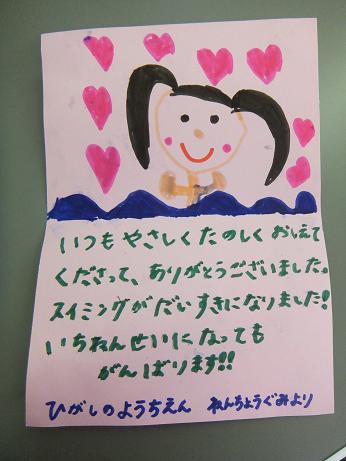 いつもやさしくたのしくおしえて
くださって、ありがとうございました。
スイミングがだいすきになりました!
いちねんせいになっても
がんばります!!
ひがしのようちえん ねんちょうぐみより